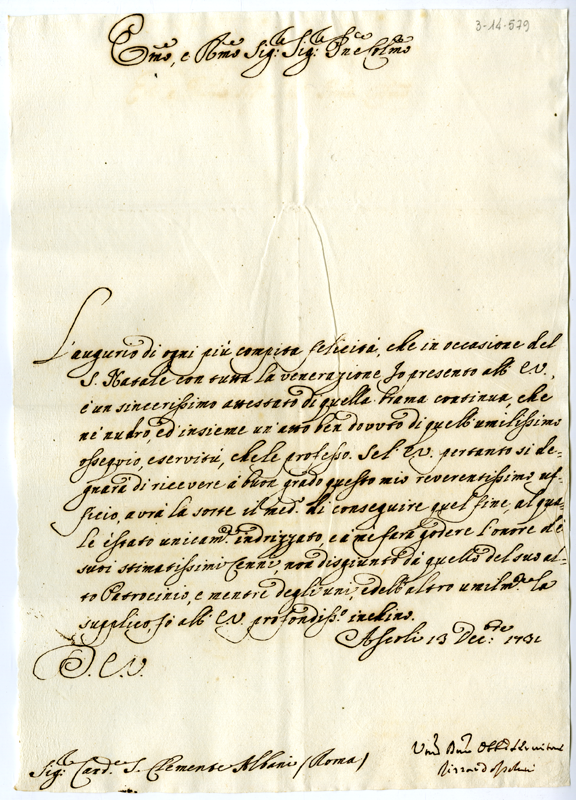 3-14-579
Em̃o, e Rm̃o Sig:re Sig:re Pñe Colm̃o
L'augurio di ogni più compita felicità, che in occasione del
S. Natale con tutta la venerazione Io presento all'E.V.,
è un sincerissimo attestato di quella brama continua, che
ne nudro, ed insieme un'atto ben dovuto di quell'umilissimo
ossequio, e servitù, che le professo. Se l'E.V. pertanto si de-
gnarà di ricevere à buon grado questo mio reverentissimo uf-
ficio, avrà la sorte il med.o di conseguire quel fine, al qua-
le è stato unicam.te indrizzato, e a me farà godere l'onore de
suoi stimatissimi Cenni, non disgiunto dà quello del suo al-
to Patrocinio, e mentre degli uni, e dell'altro umilm.te la
supplico, fò all'E.V. profondiss.o inchino.
Ascoli 13 Dec:bre 1731
D. E.V.
Sig:re Card.e S. Clemente Albani (Roma)
Um̃o Dm̃o Obb